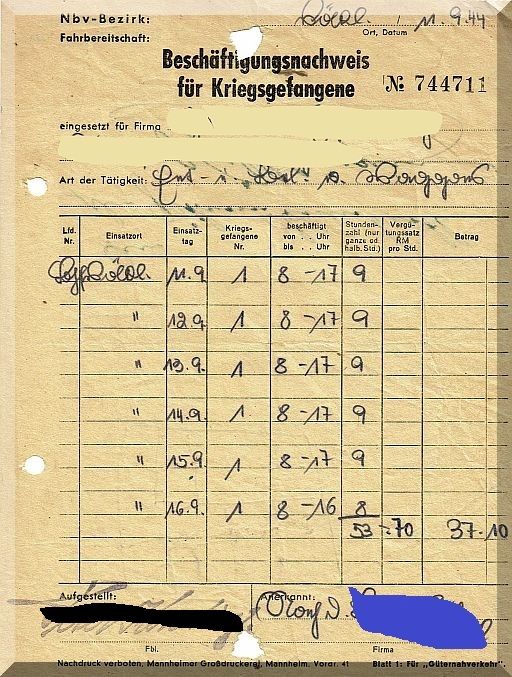 Nbv-Bezirk: 11.9.44
Fahrbereitschaft: Ort, Datum
Beschäftigungsnachweis
für Kriegsgefangene
№ 744711
eingesetzt für Firma
Art der Tätigkeit: Ent- u. Bel. v. Waggons
Lfd. Nr. Einsatzort Einsatz-tag Kriegs-gefangene Nr. beschäftigt von . . Uhr bis . . Uhr Stunden-zahl (nur ganze od. halb. Std.) Vergü-tungssatz RM pro Std. Betrag
11.9. 1 8-17 9
" 12.9. 1 8-17 9
" 13.9. 1 8-17 9
" 14.9. 1 8-17 9
" 15.9. 1 8-17 9
" 16.9. 1 8-16 8
53 -.70 37.10
Aufgestellt: Anerkannt:
Fbl. Firma
Nachdruck verboten, Mannheimer Großdruckerei, Mannheim. Vordr. 41 Blatt 1: Für „Güternahverkehr".